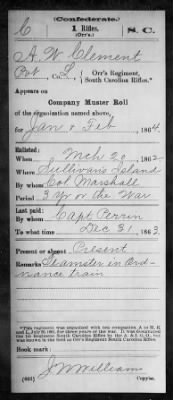 (Confederate.)
C 1 Rifles. S. C.
(Orr's.)
A. W. Clement
Pvt, Co. L, Orr's Regiment, South Carolina Rifles.*
Appears on
Company Muster Roll
of the organization named above,
for Jan & Feb, 1864.
Enlisted:
When Mch 20, 1862.
Where Sullivan's Island
By whom Col. Marshall
Period 3 yr or the War
Last paid:
By whom Capt. Perrin
To what time Dec 31, 1863.
Present or absent Present
Remarks Teamster in Ord-
nance train
Book mark:
J W William
(635) Copyist.